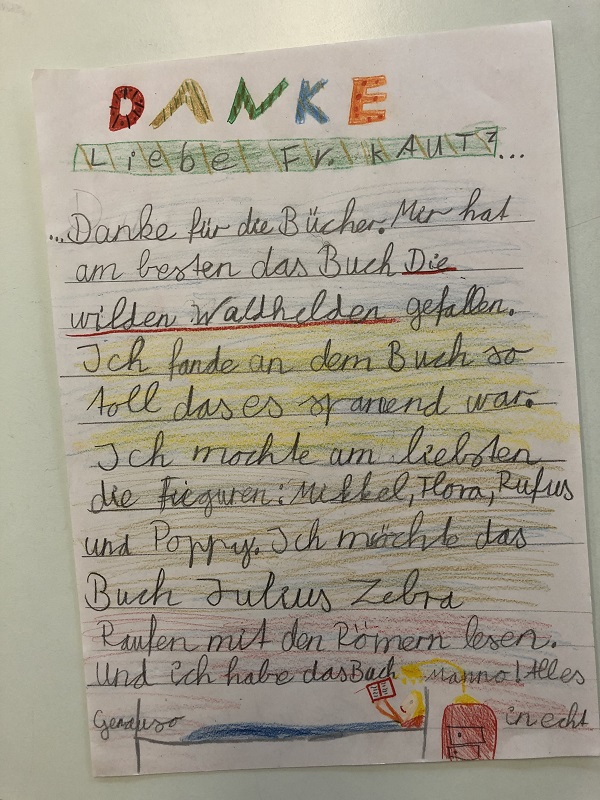 DANKE
Liebe Fr. KAUTZ...
...Danke für die Bücher. Mir hat
am besten das Buch Die
wilden Waldhelden gefallen.
Ich fande an dem Buch so
toll das es spanend war.
Ich mochte am liebsten
die Fieguren: Mikkel, Flora, Rufus
und Poppy. Ich möchte das
Buch Julius Zebra
Raufen mit den Römern lesen.
Und ich habe das Buch Manno! Alles
Genauso in echt